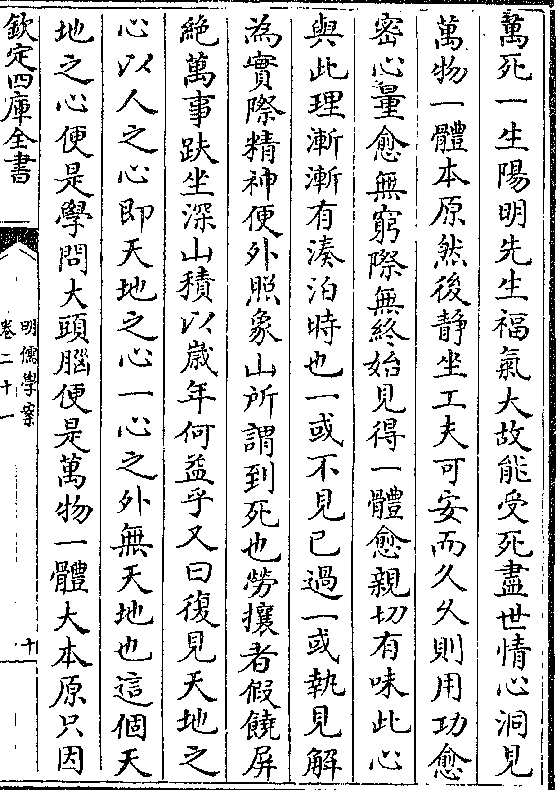 萬死一生陽明先生福氣大故能受死盡世情心洞見
萬物一體本原然後静坐工夫可安而久久則用功愈
密心量愈無窮際無終始見得一體愈親切有味此心
與此理漸漸有湊泊時也一或不見已過一或執見解
為實際精神便外照象山所謂到死也勞攘者假饒屏
絶萬事趺坐深山積以歲年何益乎又曰復見天地之
心以人之心即天地之心一心之外無天地也這個天
地之心便是學問大頭腦便是萬物一體大本原只因
欽定四庫全書
明儒學案
卷二十一
十